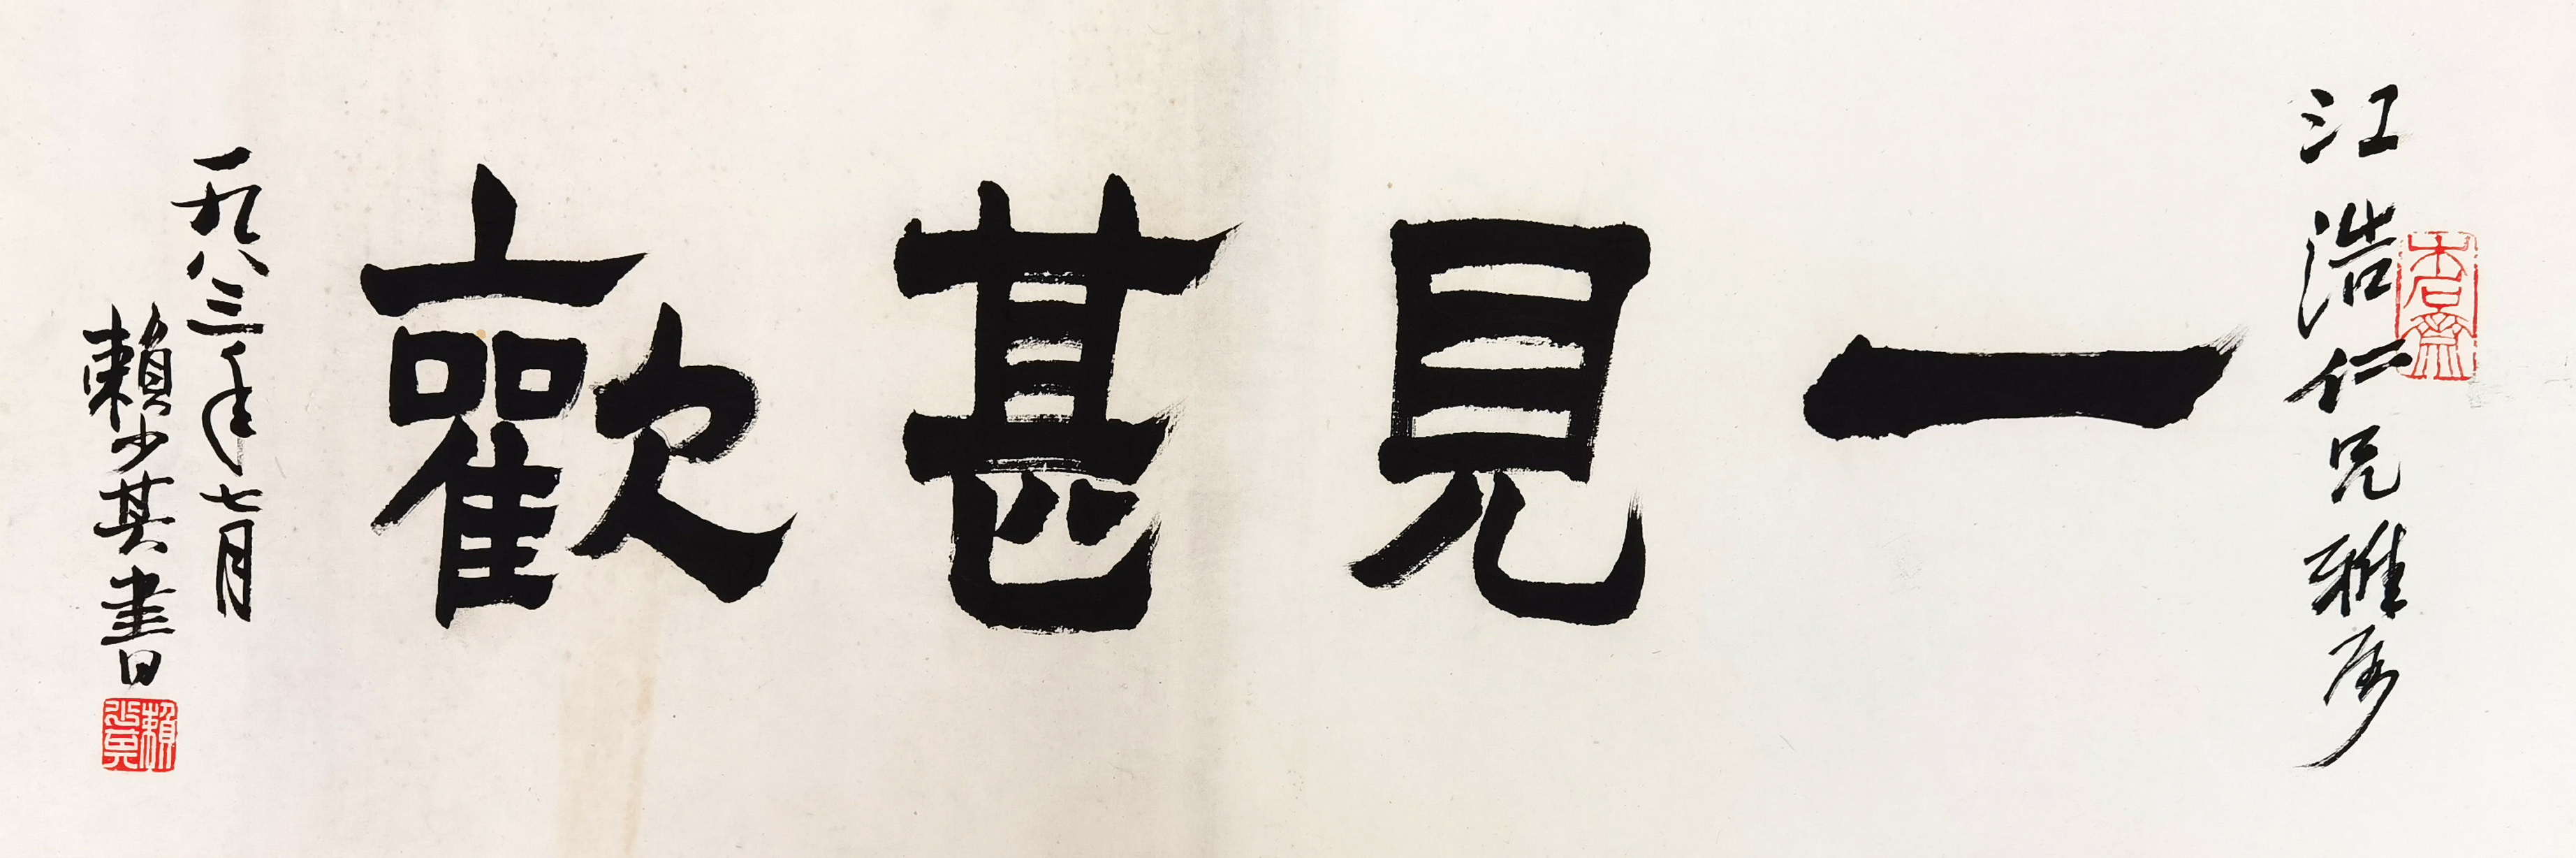 江浩仁兄雅属
木石齋
一見甚歡
一九八三年七月
賴少其書